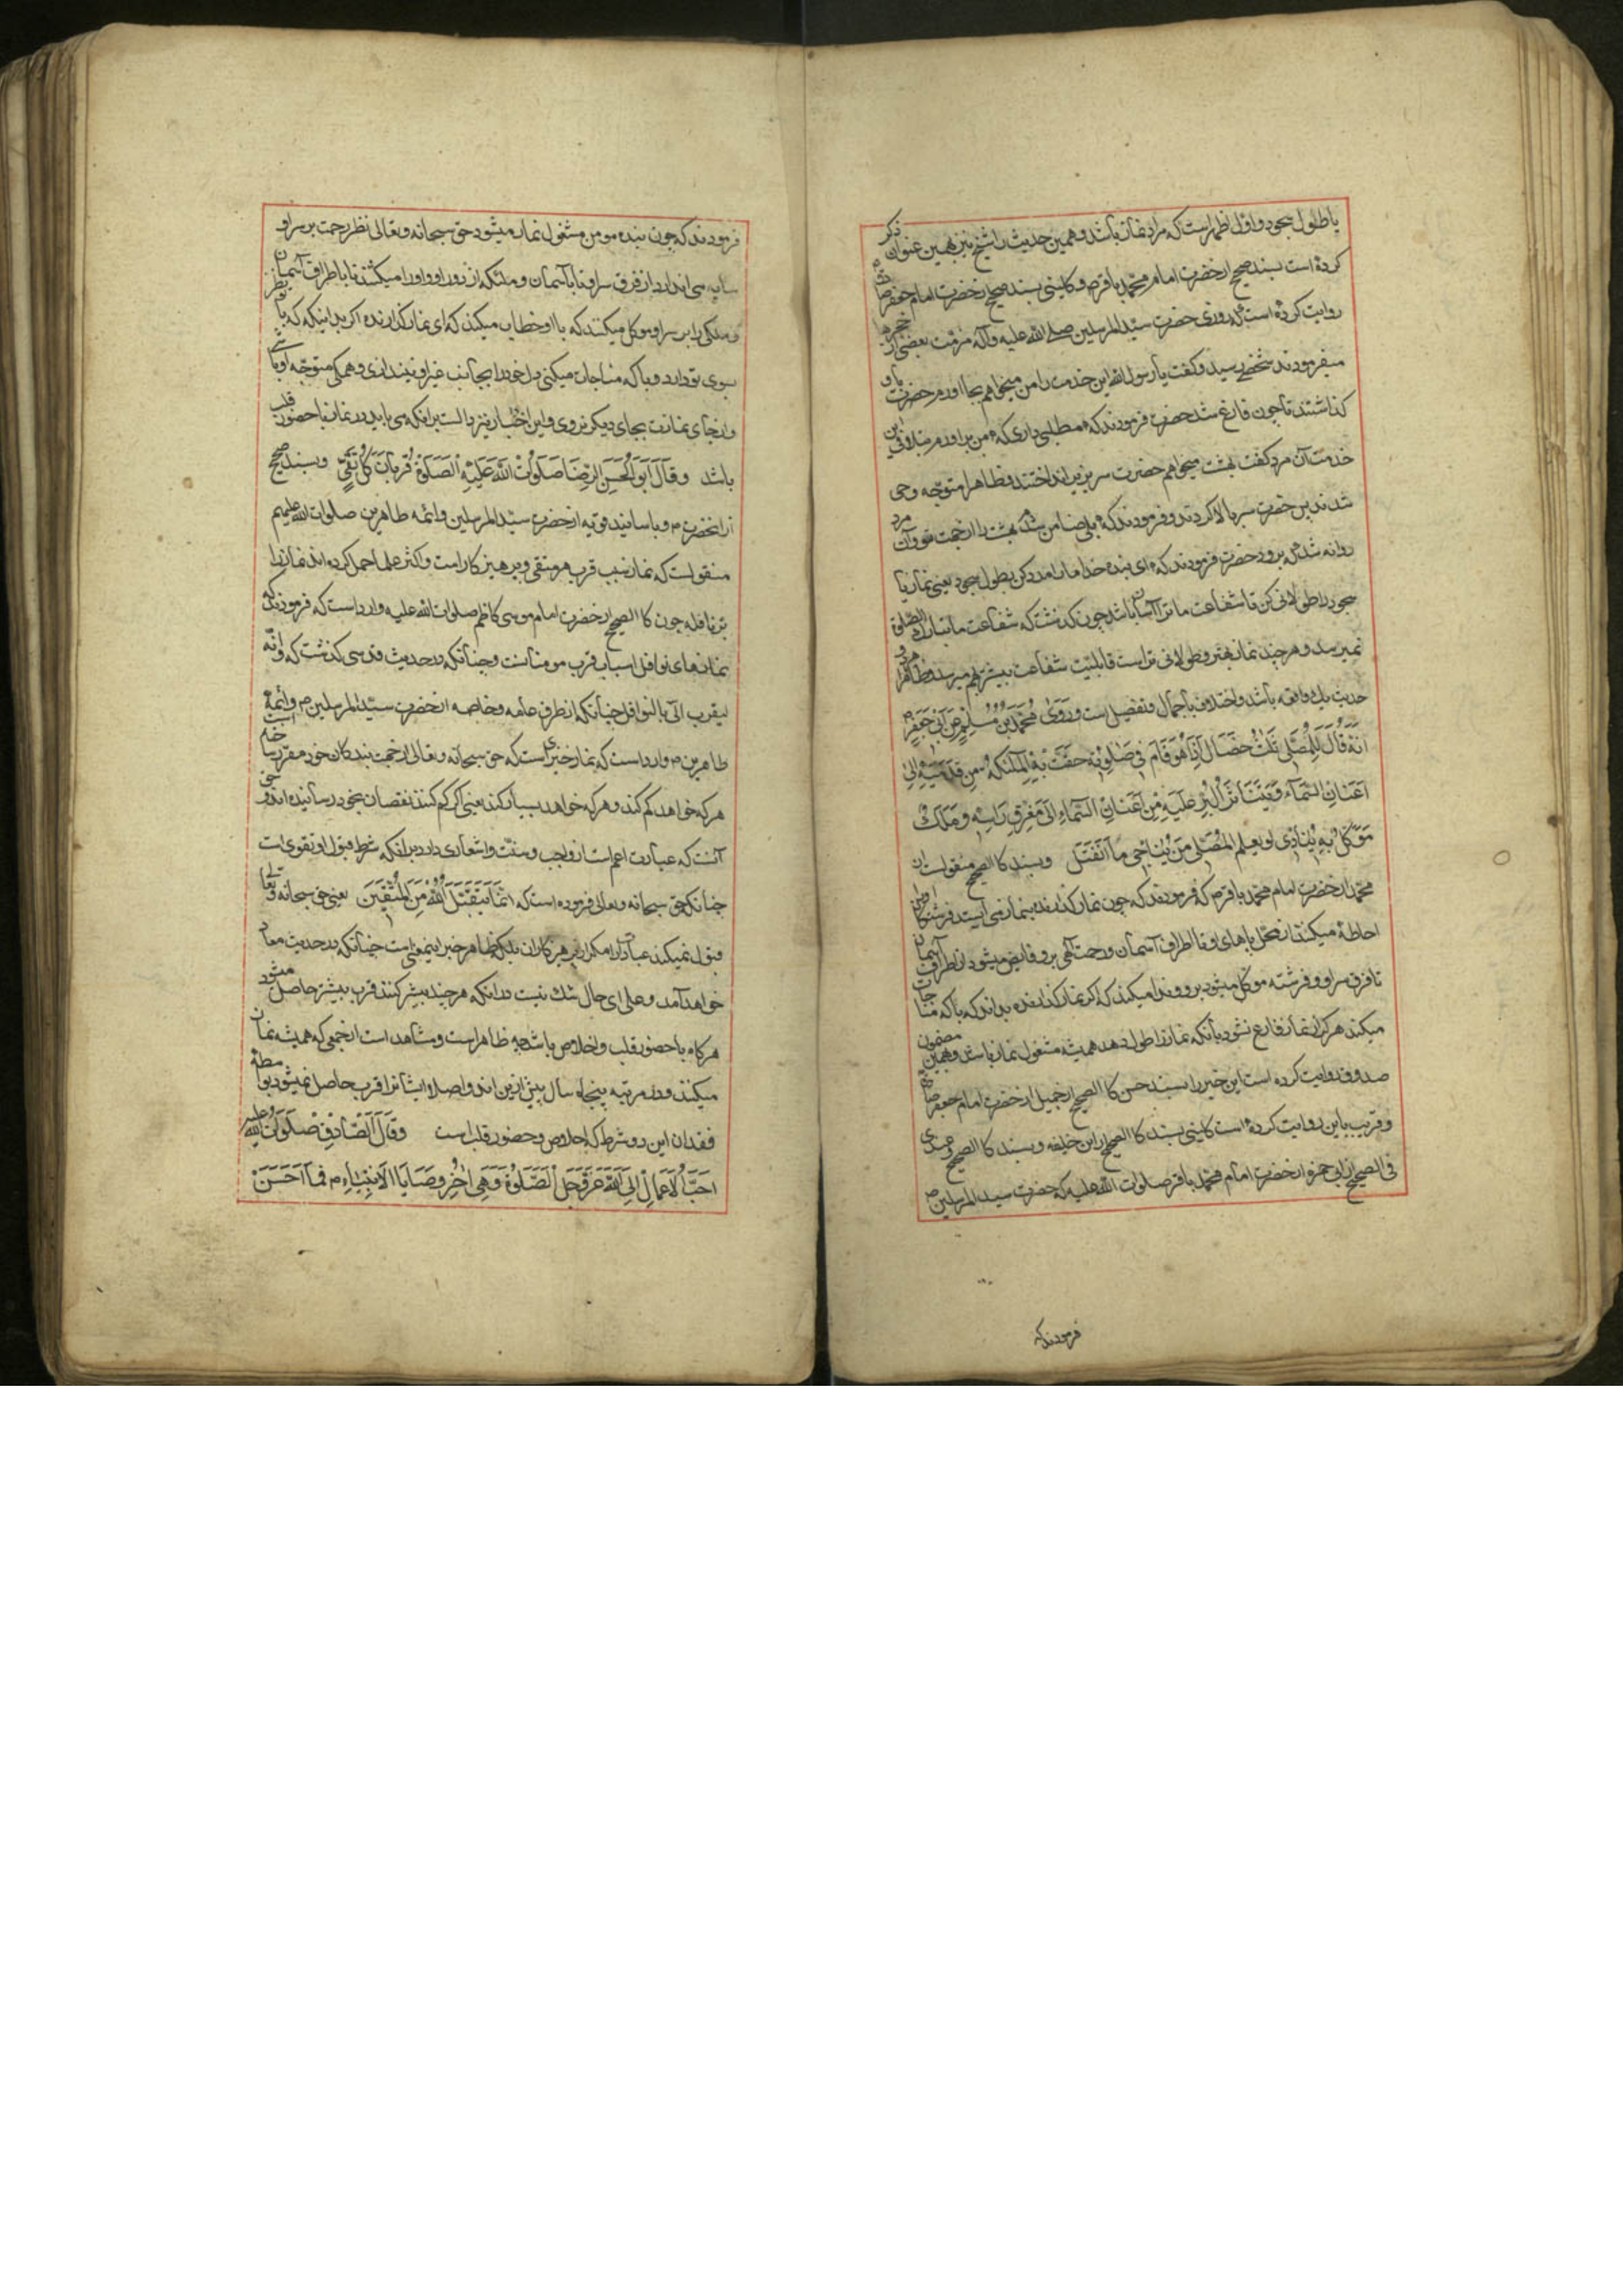 یا طول سجود و اول اظهرست که مراد نماز باشد و همین حدیث را شیخ نیز بهمین عنوان ذکر
کرده است بسند صحیح از حضرت امام محمد باقر ص و کلینی بسند صحیح از حضرت امام جعفر صادق
روایت کرده است که روزی حضرت سید المرسلین صلی الله علیه و آله مرمت بعضی از حجرها
میفرمودند شخصی رسید و گفت یا رسول الله این خدمت را من میخواهم بجا اورم حضرت باو
گذاشتند تا چون فارغ شد حضرت فرمودند که مطلبی داری که من براورم در تلافی این
خدمت آن مرد گفت بهشت میخواهم حضرت سر بزیر انداختند و ظاهرا متوجه وحی
شدند پس حضرت سر بالا کردند و فرمودند که بلی ضامن شدم بهشت را از جهت تو و آن مرد
روانه شد که برود حضرت فرمودند که ای بنده خدا ما را مدد کن بطول سجود یعنی نماز یا
سجود را طولانی کن تا شفاعت ما ترا آسان باشد چون گذشت که شفاعت ما بتارک الصلوة
نمیرسد و هر چند نماز بهتر و طولانی تر است قابلیت شفاعت بیشتر بهم میرسد و ظاهرا هر دو
حدیث یک واقعه باشد و اختلاف باجمال و تفصیل است وَرَوَی مُحَمَّدُ بْنُ مُسْلِمٍ عَنْ اَبی جَعْفَرٍ م
اَنَّهُ قَالَ لِلْمُصَلّی ثَلٰثُ خِصَالٍ اِذَا هُوَ قَامَ فی صَلٰوتِهِ حَفَّتْ بِهِ الْمَلٰئکَةُ مِن قَدَمَیْهِ اِلیٰ
اَعْنَانِ السَّمَآءِ وَ یَتَنَاثَرُ الْبِرُّ عَلَیْهِ مِنْ اَعْنَانِ السَّمَاءِ اِلَی مَفْرِقِ رَاسِهِ وَ مَلَکٌ
مُوَکَّلٌ بِهِ یُنَادِی لَو یَعلَمُ المُصَلّی مَنْ یُنَاجی مَا انْفَتَلَ و بسند کالصحیح منقولست از
محمد از حضرت امام محمد باقر ص که فرمودند که چون نماز گذارنده بنماز می ایستد فرشتگان او را
احاطه میکنند از محل پاهای او تا اطراف آسمان و رحمت الهی برو فایض میشود از اطراف آسمان
تا فرق سر او و فرشته موکل میشود برو و ندا میکند که اگر نماز گذارنده بداند که با که مناجات
میکند هرگز از نماز فارغ نشود بآنکه نماز را طول دهد همیشه مشغول نماز باشد و بهمین مضمون
صدوق روایت کرده است این خبر را بسند حسن کالصحیح از جمیل از حضرت امام جعفر صادق
و قریب باین روایت کرده است کلینی بسند کالصحیح از ابن خلیفه و بسند کالصحیح و صدوق
فی الصحیح از ابی حمزه از حضرت امام محمد باقر صلوات الله علیه که حضرت سید المرسلین ص
فرمودند که
فرمودند که چون بنده مومن مشغول نماز میشود حق سبحانه و تعالی نظر رحمت بر سر او
سایه می اندازد از فرق سر او تا بآسمان و ملئکه از دور او او را میکشند تا باطراف آسمان
و ملکی را بر سر او موکل میکنند که با او خطاب میکند که ای نماز گذارنده اگر بدانی که که نظر
بسوی تو دارد و با که مناجات میکنی دل خود را بجانب غیر او نیندازی و همگی متوجه او باشی
و از جای نمازت بجای دیگر نروی و این اخبار نیز دالست برانکه می باید در نماز با حضور قلب
باشد وَ قَالَ اَبُو الْحَسَنِ الرِّضَا صَلَوٰتُ اللّٰهِ عَلَیْهِ الصَّلَوةُ قُرْبَانُ کُلِّ تَقِیٍّ و بسند صحیح
از آنحضرت م و باسانید قویه از حضرت سید المرسلین و ائمه طاهرین صلوات الله علیهم
منقولست که نماز سبب قرب هر متقی و پرهیز کار است و اکثر علما حمل کرده اند نماز را
بر نافله چون کالصحیح از حضرت امام موسی کاظم صلوات الله علیه وارد است که فرمودند که
نمازهای نوافل اسباب قرب مومنانست و چنانکه در حدیث قدسی گذشت که و انه
لیتقرب الی بالنوافل چنانکه از طرق عامه و خاصه از حضرت سید المرسلین م و ائمه
طاهرین م وارد است که نماز خیریست که حق سبحانه و تعالی از جهت بندگان خود مقرر ساخته است
هر که خواهد کم کند و هر که خواهد بسیار کند یعنی اگر کم کنند نقصان بخود رسانیده اند و حق
آنست که عبارت اعم است از واجب و سنت و اشعاری دارد برانکه شرط قبول او تقوی است
چنانکه حق سبحانه و تعالی فرموده است که اِنَّمَا یَتَقَبَّلُ اللّٰهُ مِنَ الْمُتَّقِینَ یعنی حق سبحانه و تعالی
قبول نمیکند عبادات را مگر از پرهیز کاران بلکه ظاهر خبر اینمعنی است چنانکه در حدیث معاد
خواهد آمد و علی ای حال شک نیست در اینکه هر چند بیشتر کنند قرب بیشتر حاصل میشود
هرگاه با حضور قلب و اخلاص باشد چه ظاهر است و مشاهد است از جمعی که همیشه نماز
میکنند و در مرتبه پنجاه سال پیش ازین اند و اصلا ایشانرا قرب حاصل نمیشود بواسطه
فقدان این دو شرط که اخلاص و حضور قلب است وَ قَالَ الصَّادِقُ صَلَوٰاتُ اللّٰهِ عَلَیْهِ
اَحَبُّ الْاَعْمَالِ اِلَی اللّٰهِ عَزَّ وَ جَلَّ الصَّلٰوةُ وَ هِیَ اٰخِرُ وَصَایَا الْاَنْبِیَاءِ م فَمَا اَحْسَنَ